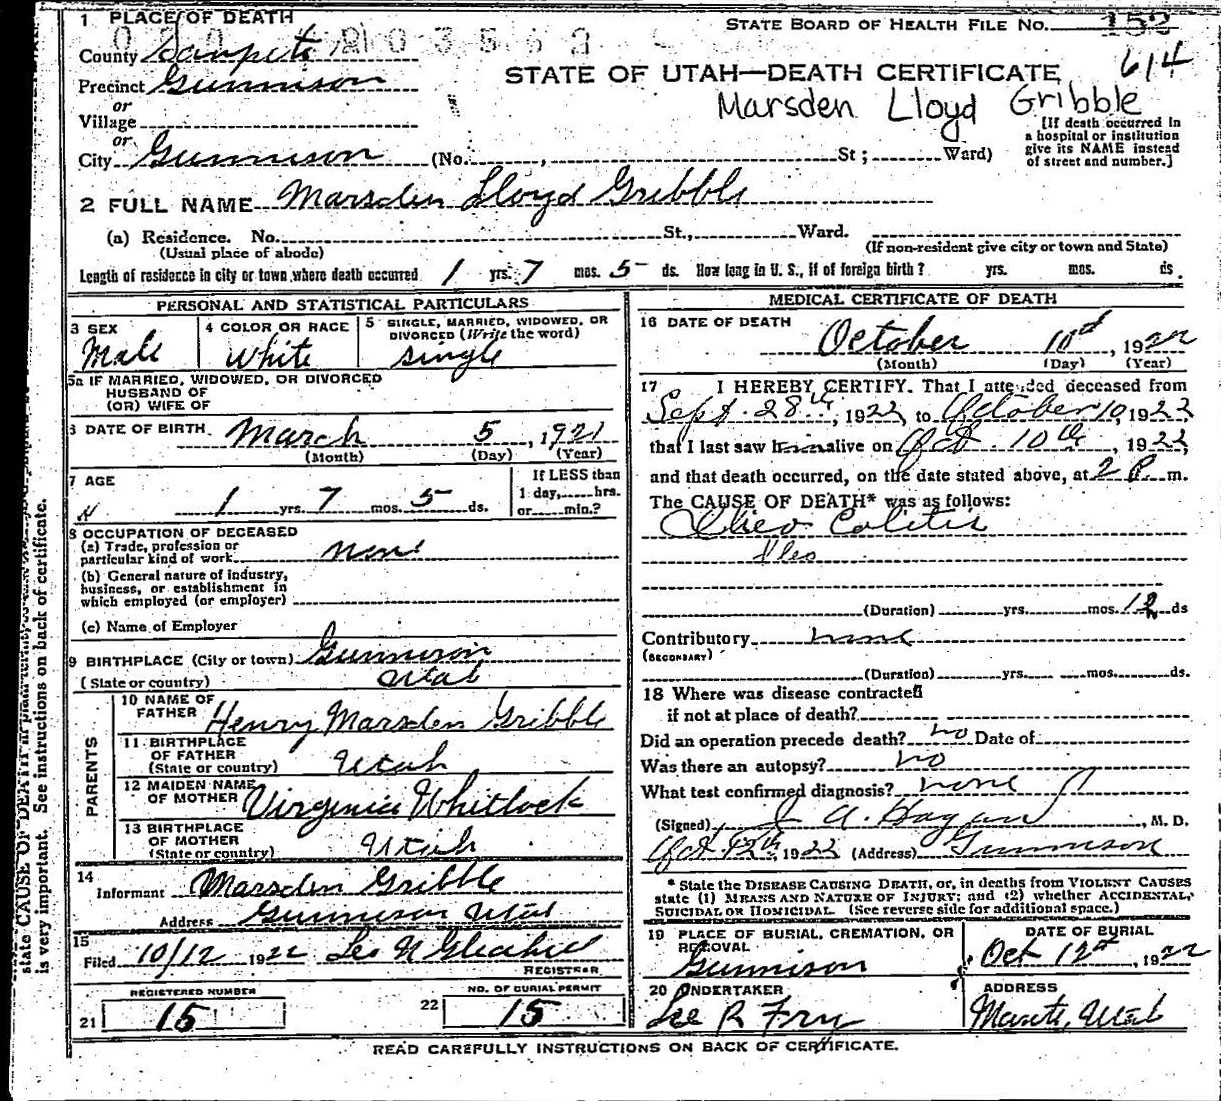 1 PLACE OF DEATH
STATE BOARD OF HEALTH FILE NO. 152
County Sanpete
614
Precinct Gunnison
STATE OF UTAH—DEATH CERTIFICATE
or
Marsden Lloyd Gribble
Village
[If death occurred in
a hospital or institution
give its NAME instead
of street and number.]
or
City Gunnison (No. , St; Ward)
2 FULL NAME Marsden Lloyd Gribble
(a) Residence. No. St., Ward.
(Usual place of abode) (If non-resident give city or town and State)
Length of residence in city or town where death occurred 1 yrs. 7 mos. 5 ds. How long in U. S., if of foreign birth? yrs. mos. ds.
PERSONAL AND STATISTICAL PARTICULARS
3 SEX
Male
4 COLOR OR RACE
White
5 SINGLE, MARRIED, WIDOWED, OR
DIVORCED (Write the word)
single
5a IF MARRIED, WIDOWED, OR DIVORCED
HUSBAND OF
(OR) WIFE OF
6 DATE OF BIRTH March 5, 1921
(Month) (Day) (Year)
7 AGE
1 yrs. 7 mos. 5 ds.
If LESS than
1 day, hrs.
or min.?
8 OCCUPATION OF DECEASED
(a) Trade, profession or
particular kind of work none
(b) General nature of industry,
business, or establishment in
which employed (or employer)
(c) Name of Employer
9 BIRTHPLACE (City or town) Gunnison
(State or country) Utah
PARENTS
10 NAME OF
FATHER Henry Marsden Gribble
11 BIRTHPLACE
OF FATHER
(State or country) Utah
12 MAIDEN NAME
OF MOTHER Virginia Whitlock
13 BIRTHPLACE
OF MOTHER
(State or country) Utah
14
Informant Marsden Gribble
Address Gunnison Utah
15
Filed 10/12 1922 Leo N
REGISTRAR
REGISTERED NUMBER
21 15
NO. OF BURIAL PERMIT
22 15
MEDICAL CERTIFICATE OF DEATH
16 DATE OF DEATH
October 10th, 1922
(Month) (Day) (Year)
17 I HEREBY CERTIFY, That I attended deceased from
Sept. 28th, 1922 to October 10, 1922
that I last saw him alive on Oct. 10th, 1922,
and that death occurred, on the date stated above, at 2 P. m.
The CAUSE OF DEATH* was as follows:
Ileo Colitis
Ileo
(Duration) yrs. mos. 12 ds
Contributory none
(SECONDARY)
(Duration) yrs. mos. ds.
18 Where was disease contracted
if not at place of death?
Did an operation precede death? no Date of
Was there an autopsy? no
What test confirmed diagnosis? none
(Signed) J A. Hagan, M. D.
Oct 12th, 1922 (Address) Gunnison
* State the DISEASE CAUSING DEATH, or, in deaths from VIOLENT CAUSES
state (1) MEANS AND NATURE OF INJURY; and (2) whether ACCIDENTAL,
SUICIDAL OR HOMICIDAL. (See reverse side for additional space.)
19 PLACE OF BURIAL, CREMATION, OR
REMOVAL
Gunnison
DATE OF BURIAL
Oct 12th, 1922
20 UNDERTAKER
Lee R Fry
ADDRESS
Manti, Utah
READ CAREFULLY INSTRUCTIONS ON BACK OF CERTIFICATE.
state CAUSE OF DEATH in plain
is very important. See instructions on back of certificate.